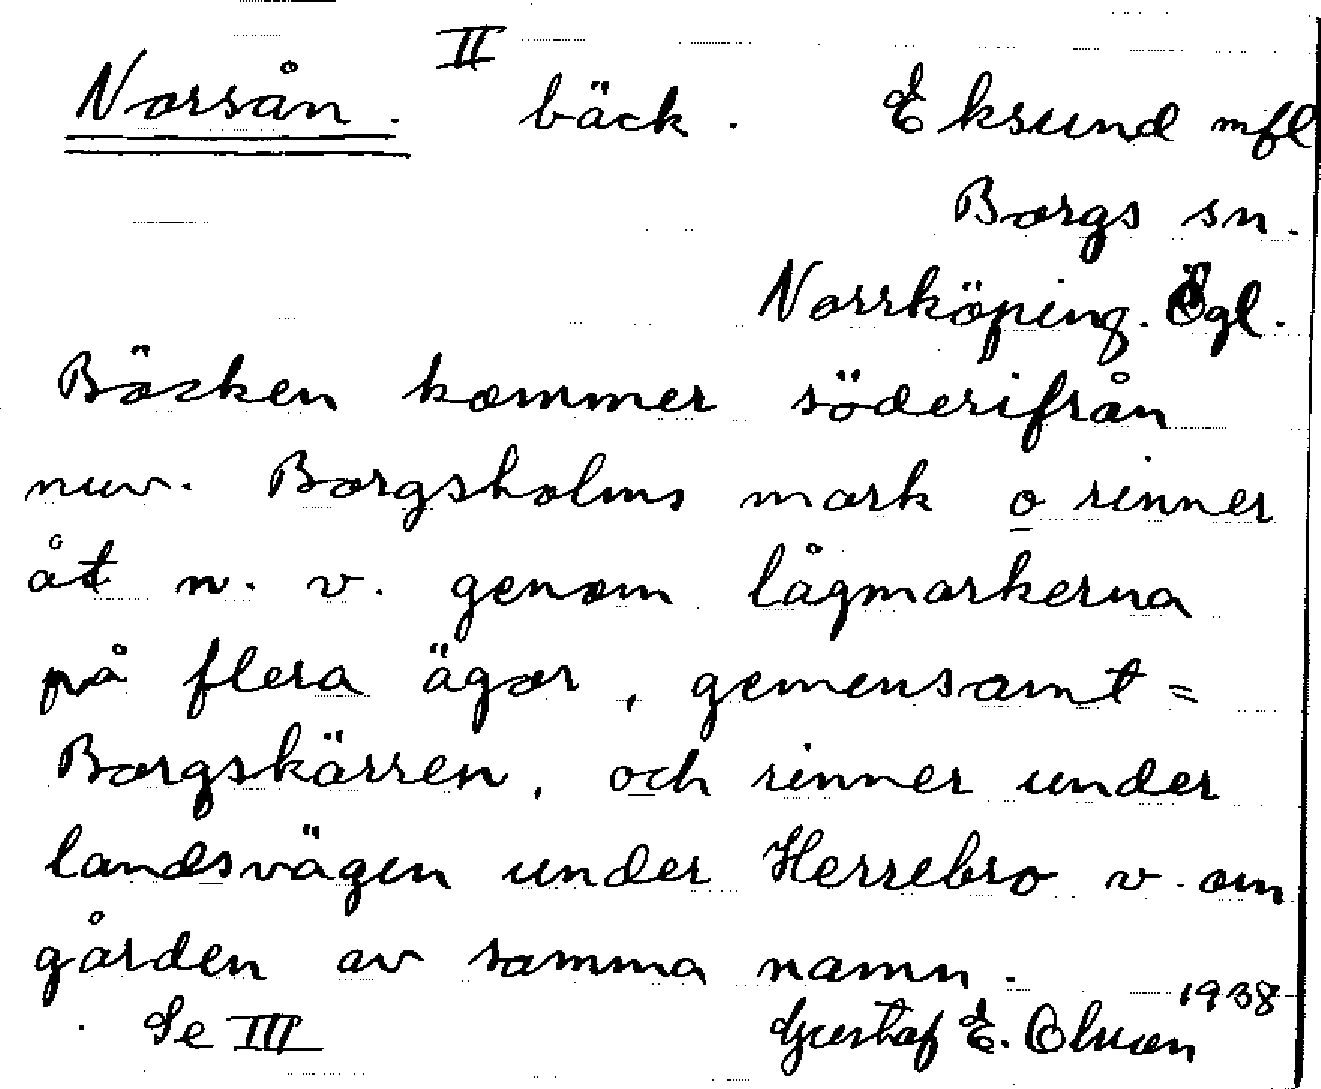 Norsån. II bäck. Eksund mfl
Borgs sn.
Norrköping. Ögl.
Bäcken kommer söderifrån
nuv. Borgsholms mark o rinner
åt n. v. genom lågmarkerna
på flera ägor, gemensamt =
Borgskärren, och rinner under
landsvägen under Herrebro v. om
gården av samma namn.
1938
Se III Gustaf E. Olsson